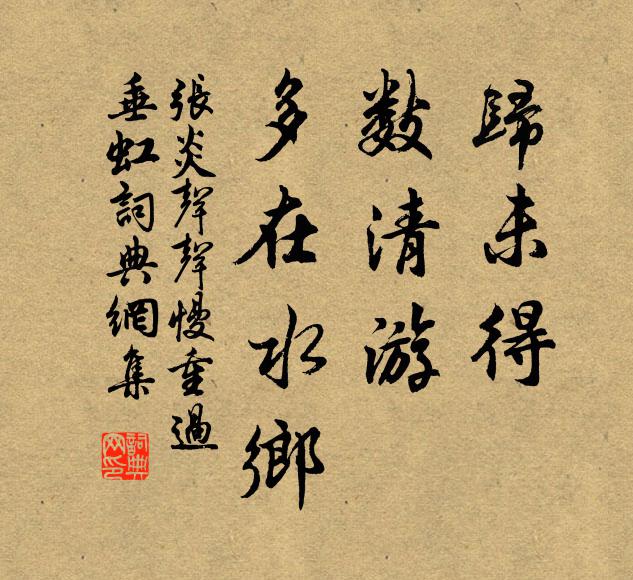 歸未得
數清游
多在水鄉
張炎聲聲慢重過
垂虹詞典網集
詞典
网印